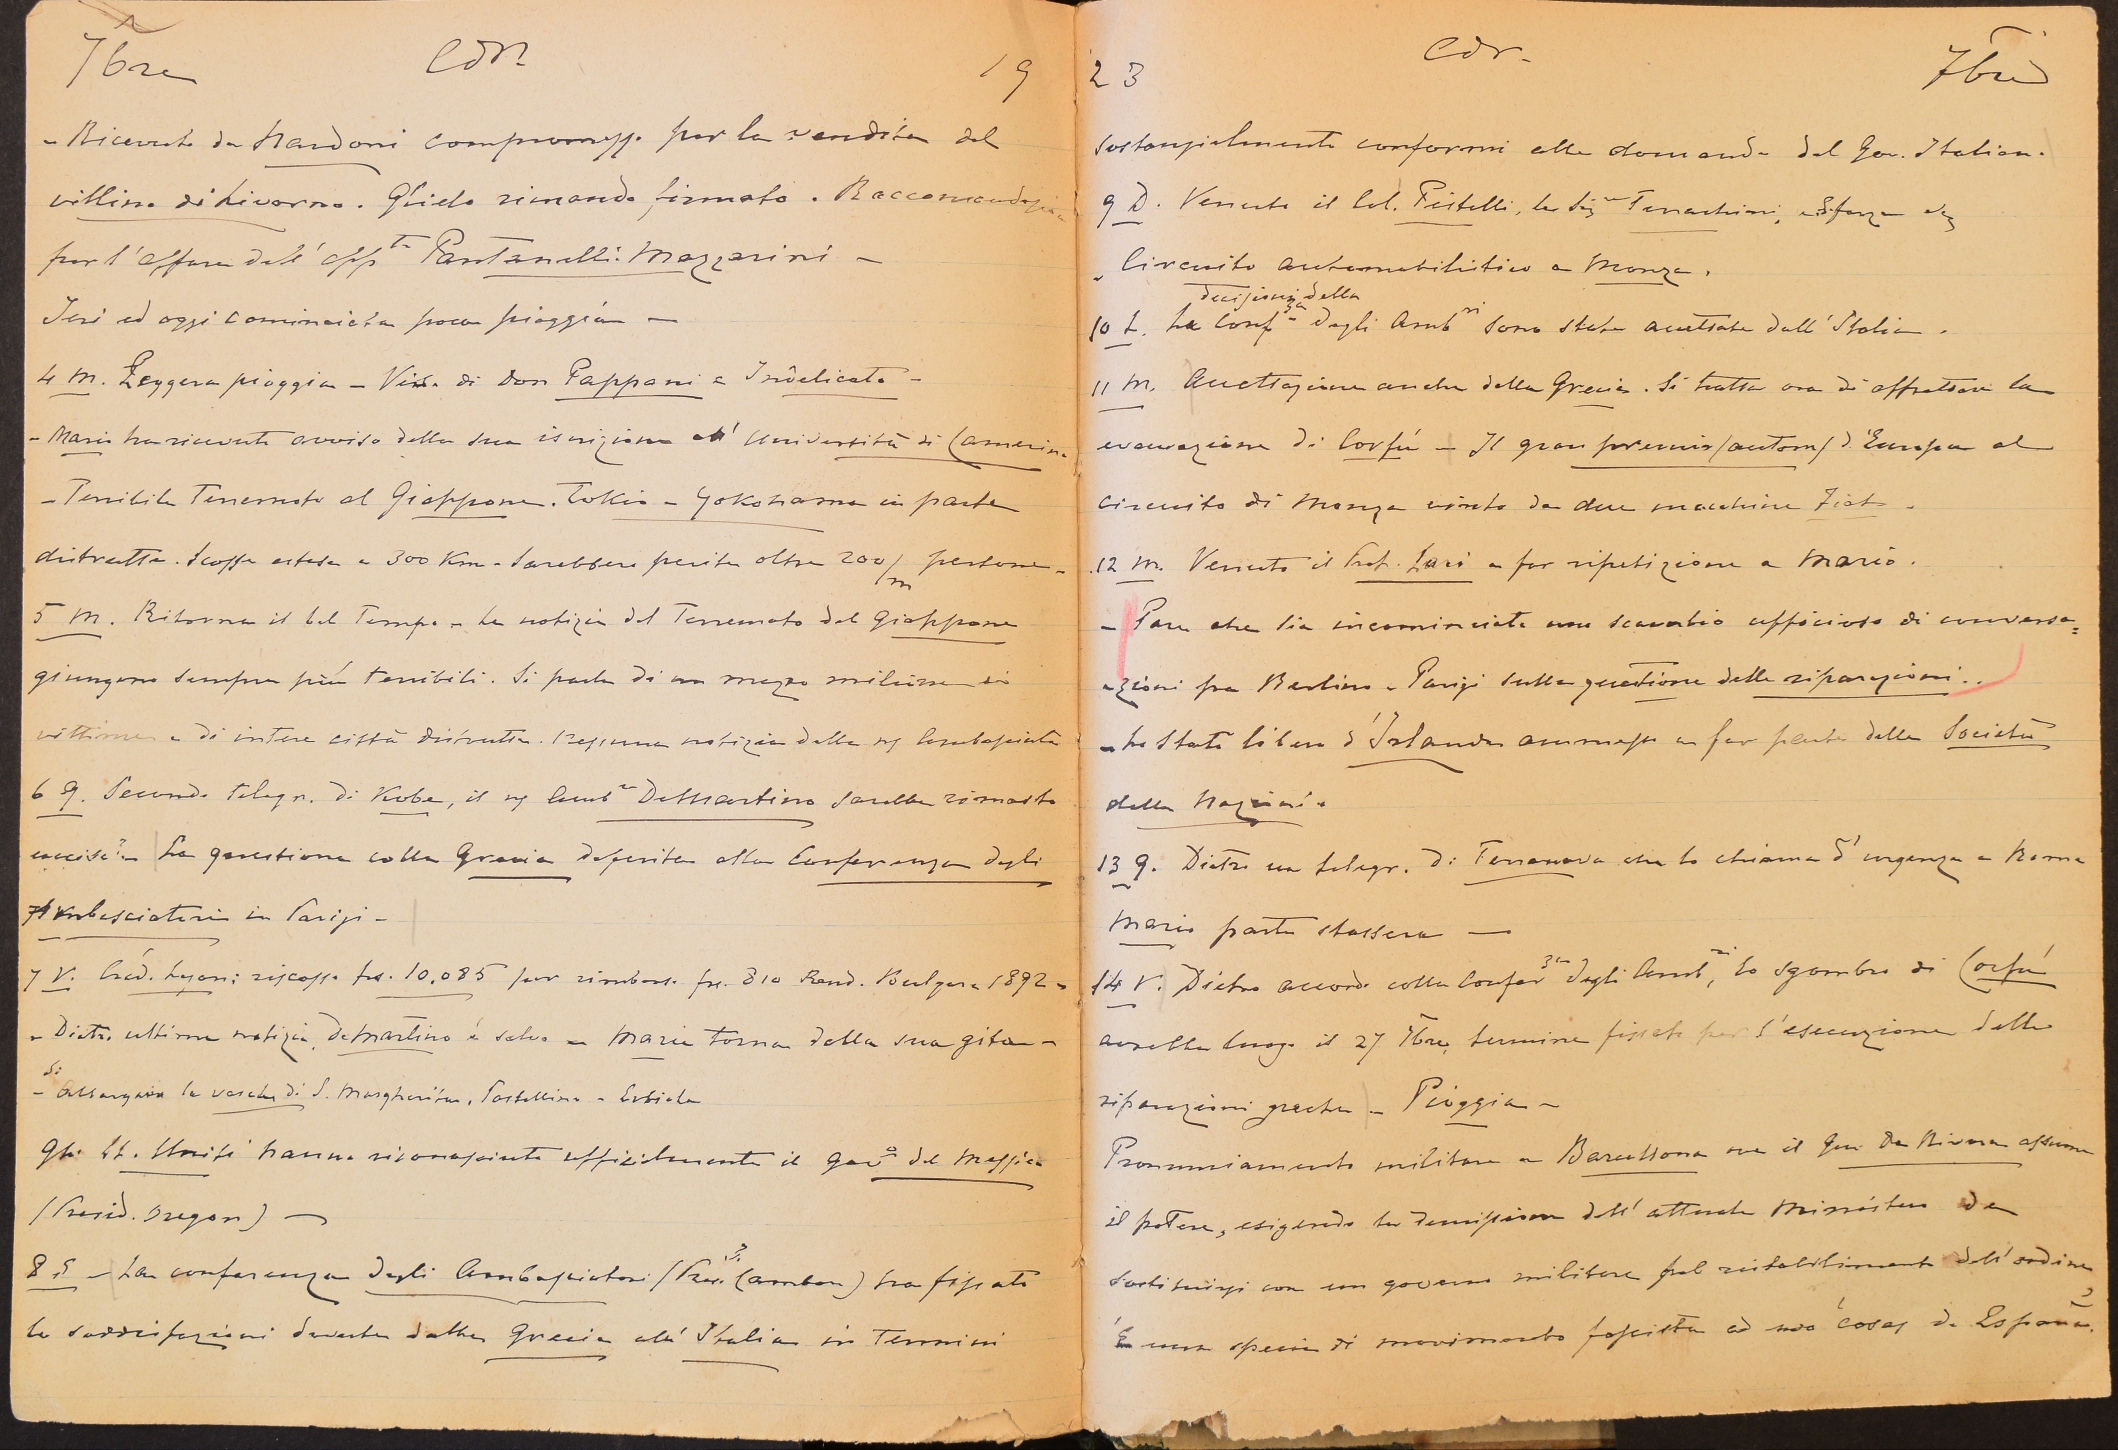 7bre Cdr. 19
- Ricevuto da Nardoni compromesso per la vendita del
villino di Livorno. Glielo rimando firmato. Raccomandazione
per l'affare dell'app.to Pantanelli: Mazzarini -
Ieri ed oggi cominciata poca pioggia -
4 M. Leggera pioggia - Visa di Don Pappani e Indelicato -
- Mario ha ricevuto avviso della sua iscrizione all'Università di Camerino
- Terribile Terremoto al Giappone. Tokio - Yokohama in parte
distrutte. Scossa estesa a 300 Km. Sarebbero perite oltre 200/m persone -
5 M. Ritorna il bel Tempo - Le notizie del Terremoto del Giappone
giungono sempre più terribili. Si parla di un mezzo milione di
vittime e di intere città distrutte. Nessuna notizia della ns Ambasciata
6 g. Secondo telegr. di Kobe, il ns Amb.re DeMartino sarebbe rimasto
ucciso? - La questione colla Grecia deferita alla Conferenza degli
Ambasciatori in Parigi -
7 V. Créd. Lyon: riscosso frs. 10,085 per rimbors. frs. 810 Rend. Bulgara 1892 -
- Dietro ultime notizie, DeMartino è salvo - Mario torna dalla sua gita -
- Si allargano le vasche di S. Margherita, Portellina -
Gli St. Uniti hanno riconosciuto ufficialmente il gov.o del Messico
(Presid. Oregon) -
8 S - La conferenza degli Ambasciatori (Pres. Cambon) ha fissato
le soddisfazioni dovute dalla Grecia all'Italia in Termini
23 Cdr. 7bre
sostanzialmente conformi alle domande del Gov. Italiano.
9 D. Venuto il Col. Pistelli, la Sig.ra Terrachini, e Sforza
- Circuito automobilistico a Monza.
decisioni della
10 L. La Conf.za degli Amb.ri sono state accettate dall'Italia.
11 M. Accettazione anche della Grecia. Si tratta ora di affrettare la
evacuazione di Corfù - Il gran premio (autom) d'Europa al
circuito di Monza vinto da due macchine Fiat.
12 M. Venuto il Prof. Lari a far ripetizione a Mario.
- Pare che sia incominciato uno scambio ufficioso di conversa=
zioni fra Berlino e Parigi sulla questione delle riparazioni..
- Lo Stato libero d'Irlanda ammesso a far parte della Società
delle Nazioni.
13 g. Dietro un telegr. di Terranova che lo chiama d'urgenza a Roma
Mario parte stassera -
14 V. Dietro accordo colla Confer.za degli Amb.ri, lo sgombro di Corfù
avrebbe luogo il 27 7bre, termine fissato per l'esecuzione delle
riparazioni greche - Pioggia -
Pronunciamento militare a Barcellona ove il Gen De Rivera assume
il potere, esigendo la dimissione dell'attuale Ministero da
sostituirsi con un governo militare pel ristabilimento dell'ordine
È una specie di movimento fascista ad uso 'cosas de España'.